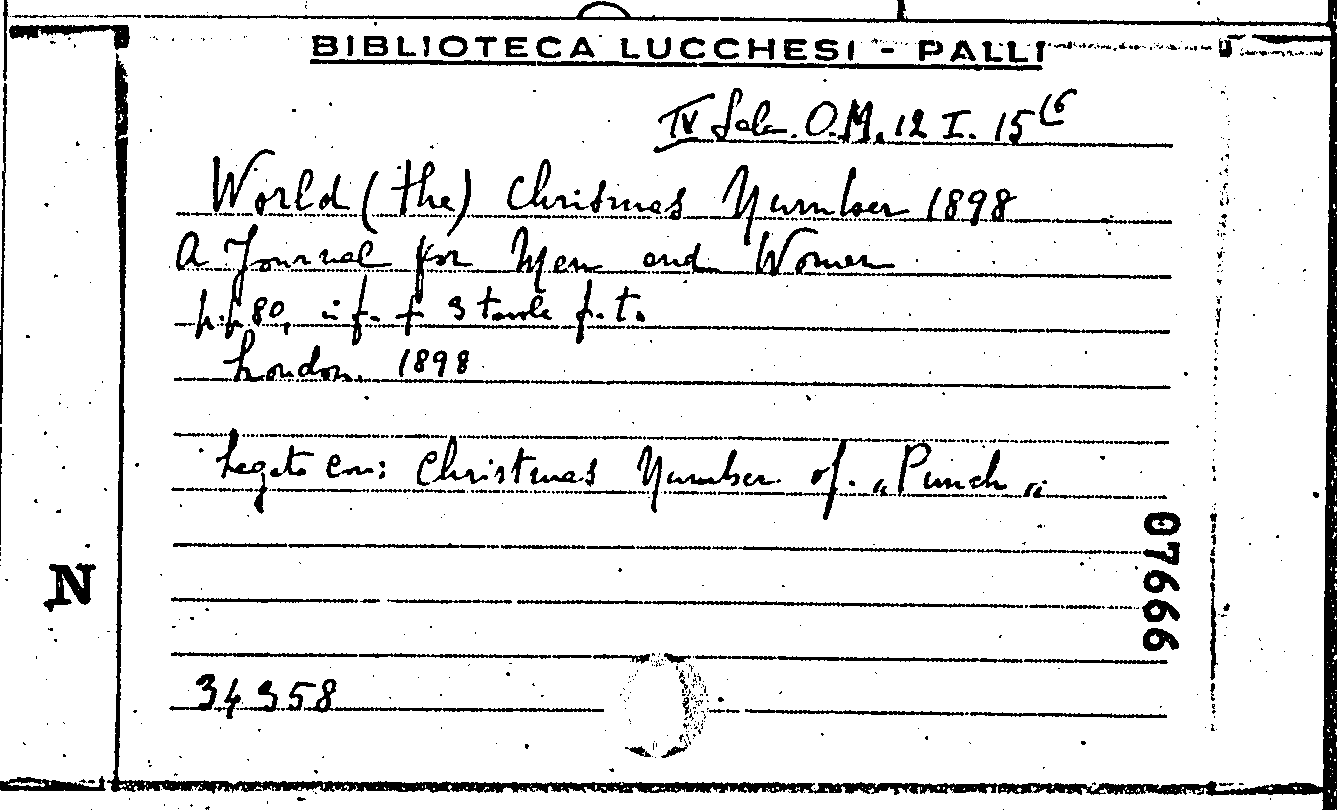 BIBLIOTECA LUCCHESI - PALLI
IV Sala. O.M. 12 I. 15 (6
World (the) Christmas Number 1898
A Journal for Men and Women
pp. 80, in f. + 3 tavole f.t.
London. 1898
Legato con: Christmas Number of. „Punch „
07666
N
34358